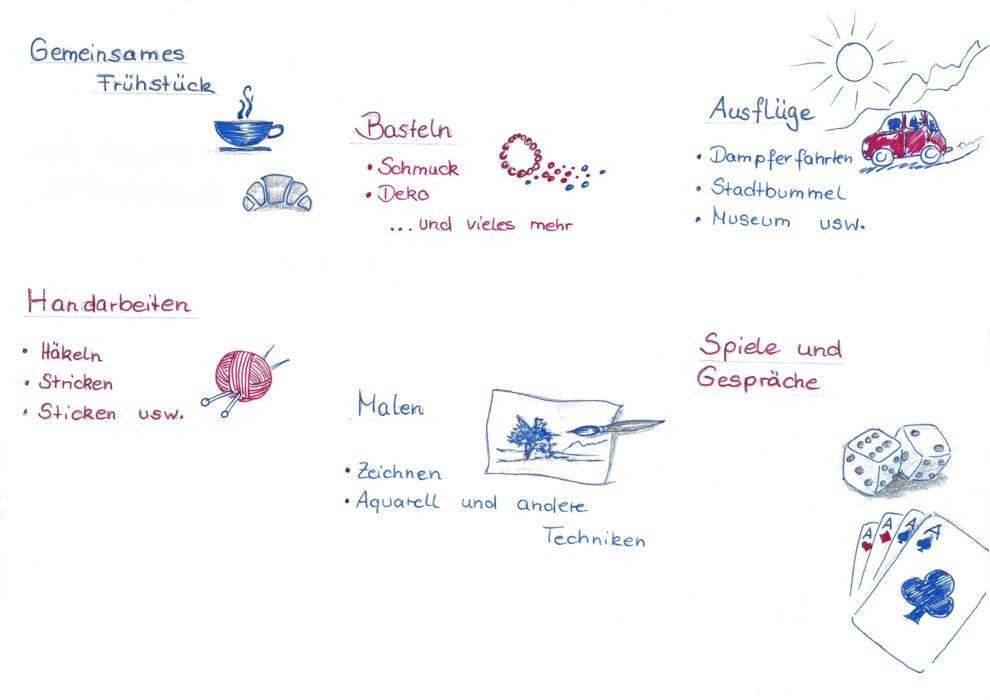 Gemeinsames
Frühstück
Basteln
• Schmuck
• Deko
... und vieles mehr
Ausflüge
• Dampferfahrten
• Stadtbummel
• Museum usw.
Handarbeiten
• Häkeln
• Stricken
• Sticken usw.
Malen
• Zeichnen
• Aquarell und andere
Techniken
Spiele und
Gespräche
A A A A